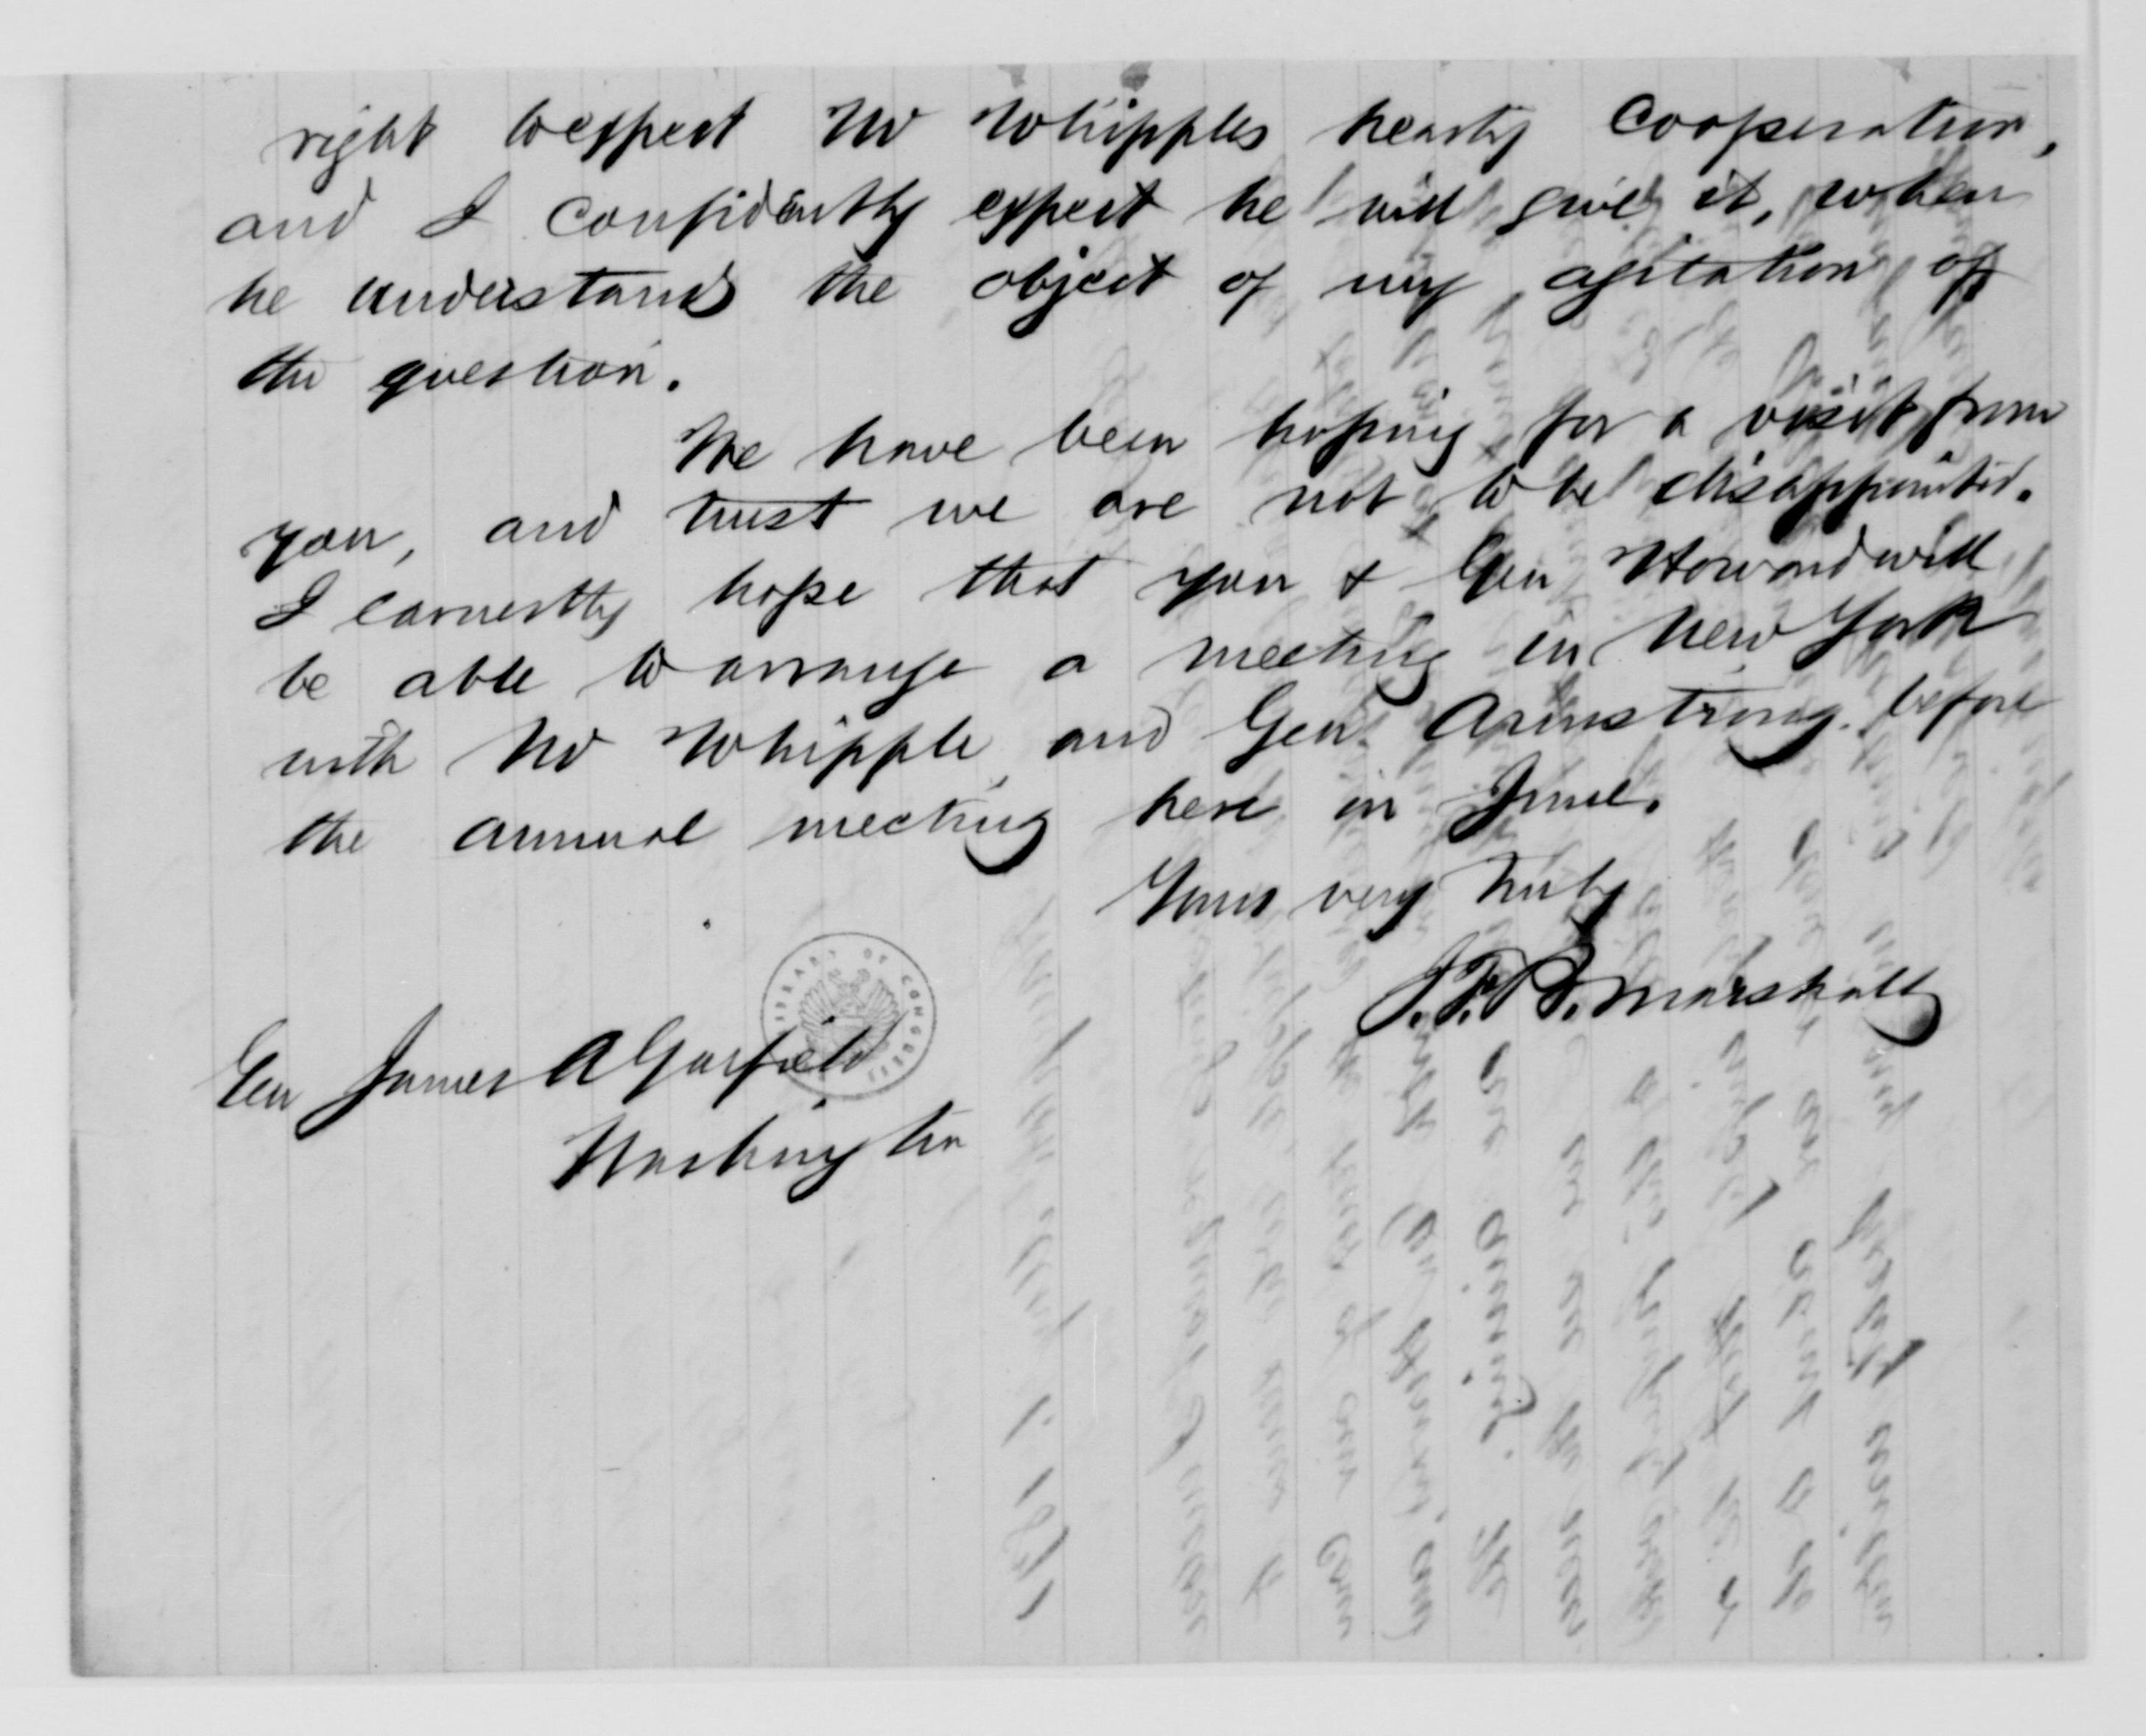 right to expect Mr Whipples hearty cooperation,
and I confidently expect he will give it, when
he understands the object of my agitation of
the question.
We have been hoping for a visit from
you, and trust we are not to be disappointed.
I earnestly hope that you & Gen Howard will
be able to arrange a meeting in New York
with Mr Whipple and Gen. Armstrong before
the annual meeting here in June.
Yours very truly
J.F.B. Marshall
LIBRARY OF CONGRESS
Gen James A Garfield
Washington